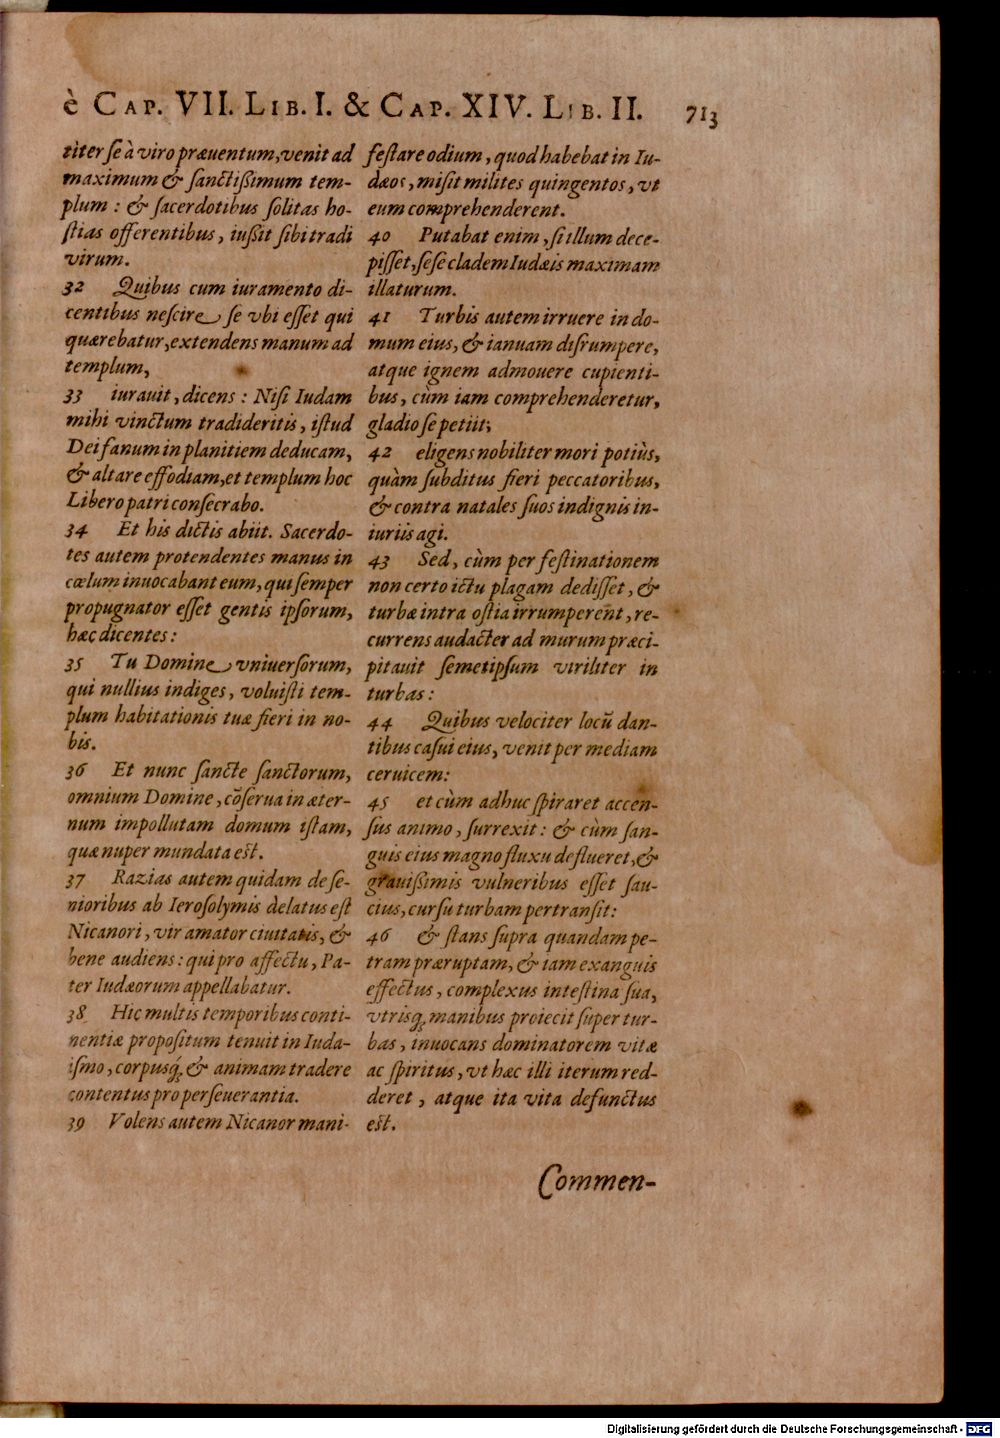 è CAP. VII. LIB. I. & CAP. XIV. LIB. II. 713
titer se à viro præuentum, venit ad
maximum & sanctißimum tem-
plum : & sacerdotibus solitas ho-
stias offerentibus, iußit sibi tradi
virum.
32 Quibus cum iuramento di-
centibus nescire se vbi esset qui
quærebatur, extendens manum ad
templum,
33 iurauit, dicens : Nisi Iudam
mihi vinctum tradideritis, istud
Dei fanum in planitiem deducam,
& altare effodiam, et templum hoc
Libero patri consecrabo.
34 Et his dictis abiit. Sacerdo-
tes autem protendentes manus in
cœlum inuocabant eum, qui semper
propugnator esset gentis ipsorum,
hæc dicentes :
35 Tu Domine vniuersorum,
qui nullius indiges, voluisti tem-
plum habitationis tuæ fieri in no-
bis.
36 Et nunc sancte sanctorum,
omnium Domine, cōserua in æter-
num impollutam domum istam,
quæ nuper mundata est.
37 Razias autem quidam de se-
nioribus ab Ierosolymis delatus est
Nicanori, vir amator ciuitatis, &
bene audiens : qui pro affectu, Pa-
ter Iudæorum appellabatur.
38 Hic multis temporibus conti-
nentiæ propositum tenuit in Iuda-
ismo, corpusq́; & animam tradere
contentus pro perseuerantia.
39 Volens autem Nicanor mani-
festare odium, quod habebat in Iu-
dæos, misit milites quingentos, vt
eum comprehenderent.
40 Putabat enim, si illum dece-
pisset, sese cladem Iudæis maximam
illaturum.
41 Turbis autem irruere in do-
mum eius, & ianuam disrumpere,
atque ignem admouere cupienti-
bus, cùm iam comprehenderetur,
gladio se petiit;
42 eligens nobiliter mori potiùs,
quàm subditus fieri peccatoribus,
& contra natales suos indignis in-
iuriis agi.
43 Sed, cùm per festinationem
non certo ictu plagam dedisset, &
turbæ intra ostia irrumperent, re-
currens audacter ad murum præci-
pitauit semetipsum viriliter in
turbas :
44 Quibus velociter locū dan-
tibus casui eius, venit per mediam
ceruicem:
45 et cùm adhuc spiraret accen-
sus animo, surrexit : & cùm san-
guis eius magno fluxu deflueret, &
grauißimis vulneribus esset sau-
cius, cursu turbam pertransit:
46 & stans supra quandam pe-
tram præruptam, & iam exanguis
effectus, complexus intestina sua,
vtrisq; manibus proiecit super tur-
bas, inuocans dominatorem vitæ
ac spiritus, vt hæc illi iterum red-
deret, atque ita vita defunctus
est.
Commen-
Digitalisierung gefördert durch die Deutsche Forschungsgemeinschaft - DFG